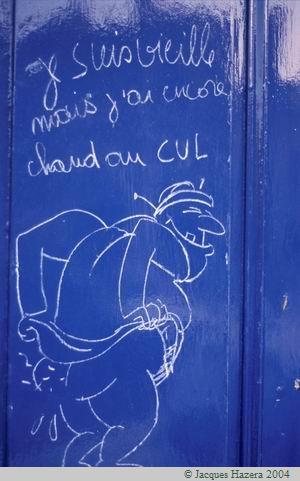 Je suis vieille
mais j'ai encore
chaud au CUL
© Jacques Hazera 2004